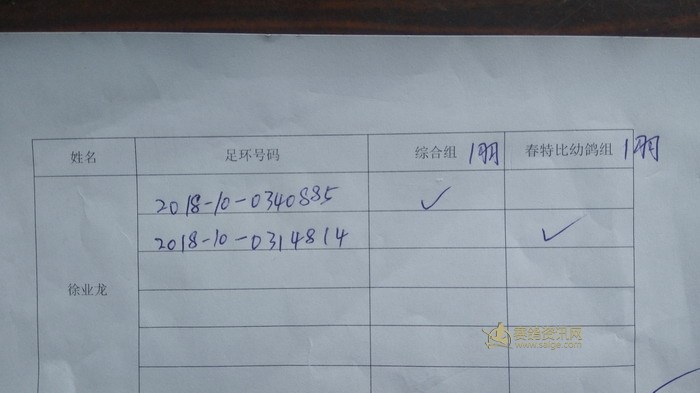 姓名 足环号码 综合组 1羽 春特比幼鸽组 1羽
2018-10-0340885 ✓
2018-10-0314814 ✓
徐业龙
赛鸽资讯网
www.saige.com